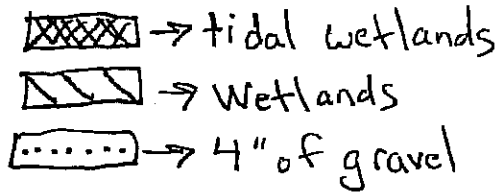 → tidal wetlands
→ Wetlands
→ 4" of gravel